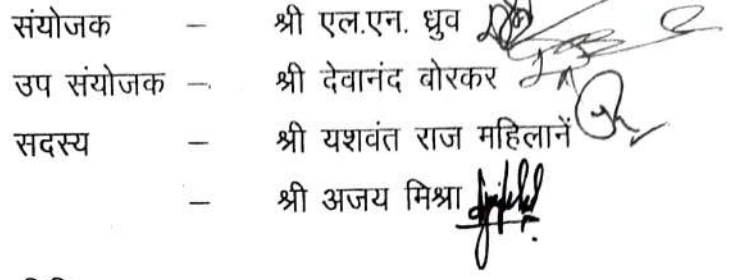 संयोजक – श्री एल.एन. ध्रुव
उप संयोजक – श्री देवानंद बोरकर
सदस्य – श्री यशवंत राज महिलानें
– श्री अजय मिश्रा